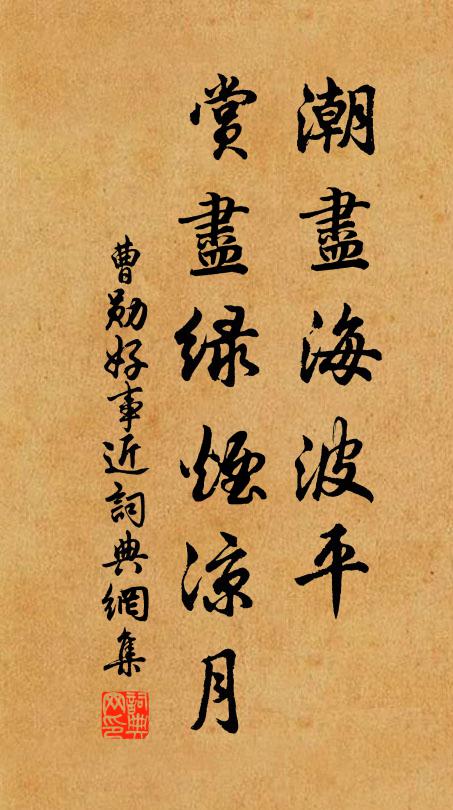 潮盡海波平
賞盡緑煙涼月
曹勛好事近詞典網集
詞典網印